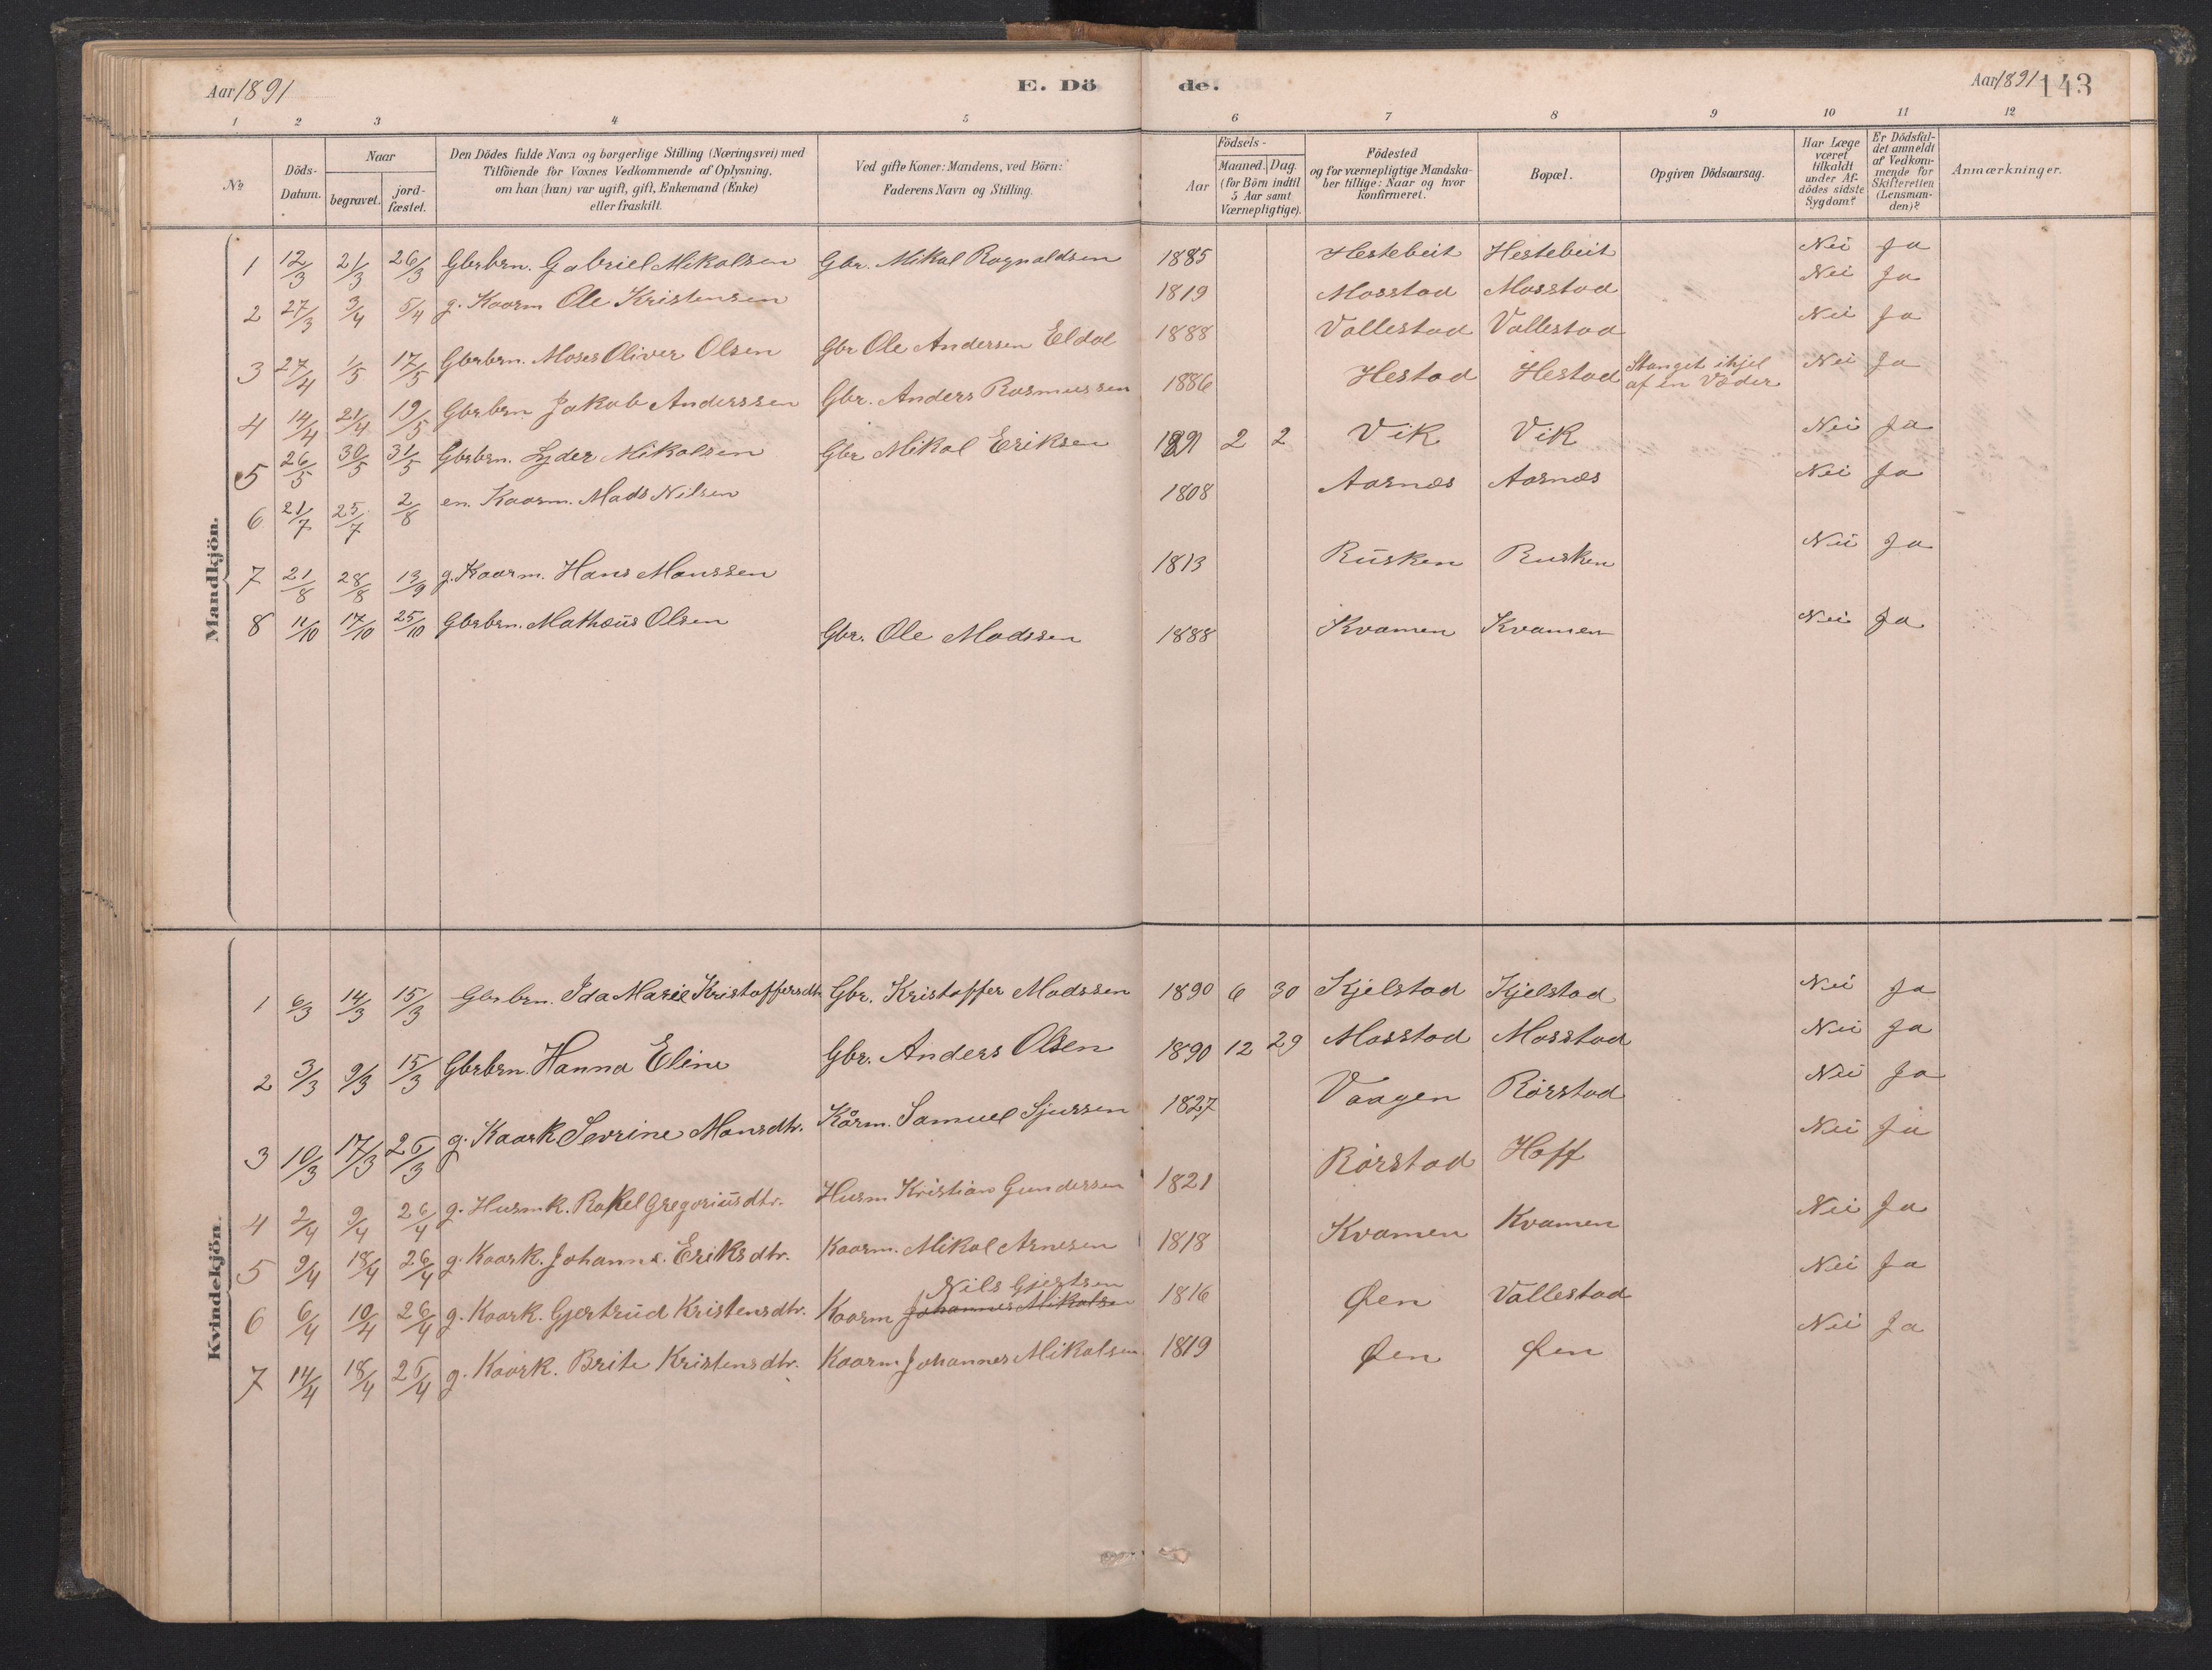 Aar 1891 E. Dö de. Aar 1891 143
1 2 3 4 5 6 7 8 9 10 11 12
No Döds-Datum. Naar begravet. jord-fæstet. Den Dödes fulde Navn og borgerlige Stilling (Næringsvei) med Tilföiende for Voxnes Vedkommende af Oplysning, om han (hun) var ugift, gift, Enkemand (Enke) eller fraskilt. Ved gifte Koner: Mandens, ved Börn: Faderens Navn og Stilling. Födsels- Aar Maaned. Dag. (for Börn indtil 5 Aar samt Værnepligtige). Födested og for værnepligtige Mandska-ber tillige: Naar og hvor konfirmeret. Bopæl. Opgiven Dödsaarsag. Har Læge været tilkaldt under Af-dödes sidste Sygdom? Er Dödsfal-det anmeldt af Vedkom-mende for Skifteretten (Lensman-den)? Anmærkninger.
Mandkjön.
1 12/3 21/3 26/3 Gbrbrn. Gabriel Mikalsen Gbr. Mikal Ragnaldsen 1885 Hestebeit Hestebeit Nei Ja
2 27/3 3/4 5/4 g. Kaarm Ole Kristensen 1819 Mosstad Mosstad Nei Ja
3 27/4 1/5 17/5 Gbrbrn. Moses Oliver Olsen Gbr Ole Andersen Eldal 1888 Vallestad Vallestad Nei Ja
4 14/4 21/4 19/5 Gbrbrn Jakob Anderssen Gbr. Anders Rasmussen 1886 Hestad Hestad Stanget ihjel af en Væder Nei Ja
5 26/5 30/5 31/5 Gbrbrn. Lyder Mikalsen Gbr Mikal Eriksen 1891 2 2 Vik Vik Nei Ja
6 21/7 25/7 2/8 en. Kaarm. Mads Nilsen 1808 Aarnæs Aarnæs Nei Ja
7 21/8 28/8 13/9 g. Kaarm. Hans Monssen 1813 Rusken Rusken Nei Ja
8 11/10 17/10 25/10 Gbrbrn. Mathæus Olsen Gbr. Ole Madssen 1888 Kvamen Kvamen Nei Ja
Kvindekjön.
1 6/3 14/3 15/3 Gbrbrn. Ida Marie Kristoffersdtr Gbr. Kristoffer Madssen 1890 6 30 Kjelstad Kjelstad Nei Ja
2 3/3 9/3 15/3 Gbrbrn. Hanna Eline Gbr. Anders Olsen 1890 12 29 Mosstad Mosstad Nei Ja
3 10/3 17/3 26/3 g. Kaark Sevrine Monsdtr. Kårm. Samuel Sjurssen 1827 Vaagen Rörstad Nei Ja
4 2/4 9/4 26/4 g. Husmk. Rakel Gregoriusdtr. Husm Kristian Gunderssen 1821 Rörstad Hoff Nei Ja
5 9/4 18/4 26/4 g. Kaark. Johanne Eriksdtr. Kaarm. Mikal Arnesen 1818 Kvamen Kvamen Nei Ja
6 6/4 10/4 26/4 g. Kaark. Gjertrud Kristensdtr. Kaarm Johannes Mikalsen Nils Gjertsen 1816 Øen Vallestad Nei Ja
7 14/4 18/4 26/4 g. Kaark. Brite Kristensdtr. Kaarm Johannes Mikalsen 1819 Øen Øen Nei Ja